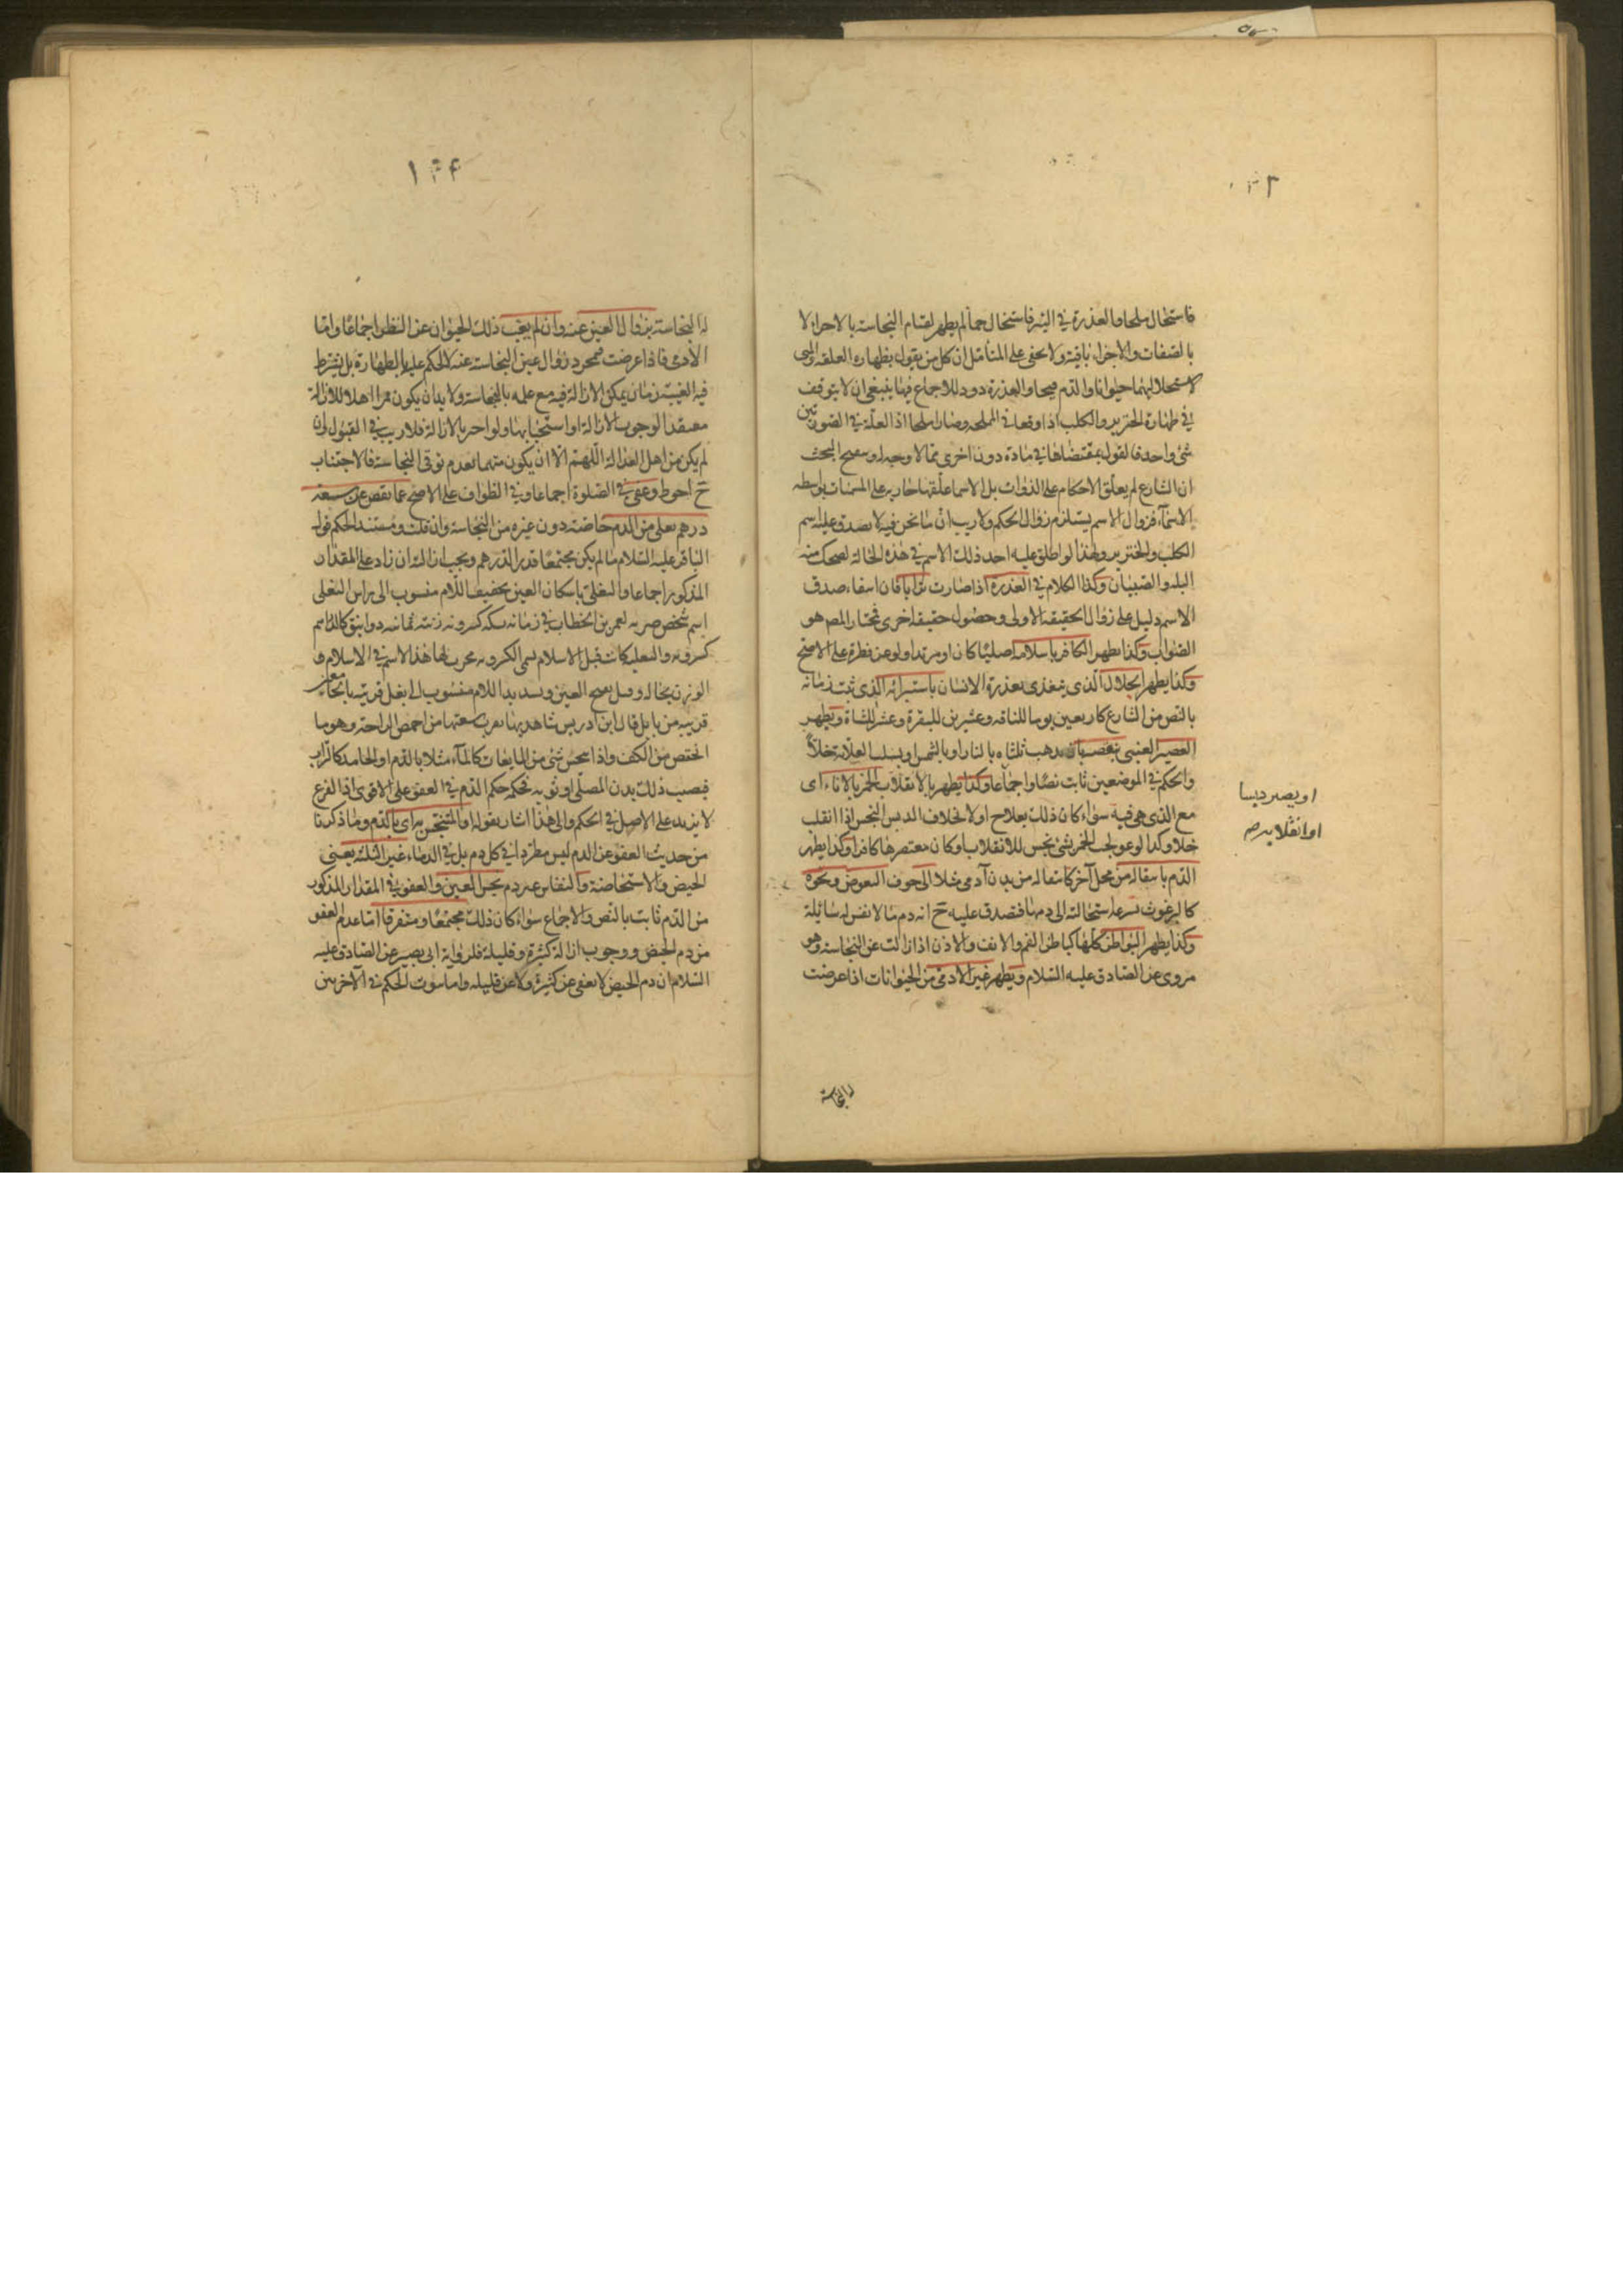 فاستحال ملحا والعذرة في البئر فاستحال حمأ لم يطهر لقيام النجاسة بالاجزاء لا
بالصفات والاجزاء باقية ولا يخفى على المتأمل ان كل من يقول بطهارة العلقة والمني
لاستحالتهما حيوانا والدم قيحا والعذرة دودا للاجماع فيها ينبغي ان لا يتوقف
في طهارة الخنزير والكلب اذا وقعا في المملحة وصارا ملحا اذ العلة في الصورتين
شئ واحد فالقول بمقتضاها في مادة دون اخرى مما لا وجه له وتنقيح البحث
ان الشارع لم يعلق الاحكام على الذوات بل الاسما علقها جارية على المسميات بواسطة
الاسماء فزوال الاسم يستلزم زوال الحكم ولا ريب ان ما نحن فيه لا يصدق عليه اسم
الكلب والخنزير ولهذا لو اطلق عليه احد ذلك الاسم في هذه الحالة لضحك منه
البله والصبيان وكذا الكلام في العذرة اذا صارت ترابا فان انتفاء صدق
الاسم دليل على زوال الحقيقة الاولى وحصول حقيقة اخرى فمختار المص هو
الصواب وكذا يطهر الكافر باسلامه اصليا كان او مرتدا ولو عن فطرة على الاصح
وكذا يطهر الجلال الذي يتغذى بعذرة الانسان باستبرائه الذي ثبت زمانه
بالنص من الشارع كاربعين يوما للناقة وعشرين للبقرة وعشر للشاة ويطهر
العصير العنبي بذهب ثلثاه بالنار او بالشمس او
والحكم في الموضعين ثابت نصا واجماعا وكذا يطهر بالانقلاب الخمر بالاناء اى
مع الذي هي فيه سواء كان ذلك بعلاج او لا بخلاف الدبس النجس اذا انقلب
خلا وكذا لو عولجت الخمر بشئ نجس للانقلاب او كان معتصرها كافرا وكذا يطهر
الدم بانتقاله من محل آخر كانتقاله من بدن آدمي مثلا الى جوف البعوض ونحوه
كالبرغوث لسرعة استحالته الى دمها فتصدق عليه ح انه دم ما لا نفس له سائلة
وكذا يطهر البواطن كلها كباطن الفم والانف والاذن اذا زالت عين النجاسة وهو
مروي عن الصادق عليه السلام ويطهر غير الآدمي من الحيوانات اذا عرضت
او يصير دبسا
او انقلابه
له النجاسة
١٣٤
له النجاسة بزوال العين عنه وان لم يغب ذلك الحيوان عن النظر اجماعا واما
الآدمي فاذا عرضت فمجرد زوال عين النجاسة عنه لا يحكم عليه بالطهارة بل يشترط
فيه الغيبة زمان يمكن الازالة فيه مع علمه بالنجاسة ولا بد ان يكون مميزا اهلا للازالة
معتقدا لوجوب الازالة او استحبابها ولو اخبر بالازالة فلا ريب في القبول وان
لم يكن من اهل العدالة اللهم الا ان يكون متهما بعدم توقي النجاسة فالاجتناب
ح احوط وعفي في الصلوة اجماعا وفي الطواف على الاصح عما نقص عن سعة
درهم بغلي من الدم خاصة دون غيره من النجاسة وان قلت ومستند الحكم قول
الباقر عليه السلام ما لم يكن مجتمعا قدر الدرهم ويجب ازالته ان زاد على المقدار
المذكور اجماعا والبغلي باسكان العين بتخفيف اللام منسوب الى راس البغل
اسم شخص ضربه لعمر بن الخطاب في زمانه بسكة كسروية زنته ثمانية دوانيق كالراسم
كسروية والبغلية كانت قبل الاسلام تسمى الكسروية فحدث لها هذا الاسم في الاسلام و
الوزن بحاله وقيل بفتح العين وتشديد اللام منسوب الى بغل قرية بالجامعين
قريبة من بابل قال ابن ادريس شاهدتها تقرب سعتها من اخمص الراحة وهو ما
انخفض من الكف واذا نجس شئ من المايعات كالماء مثلا بالدم او الجامد كالتراب
فيصيب ذلك بدن المصلي او ثوبه فحكمه حكم الدم في العفو على الاقوى اذ الفرع
لا يزيد على الاصل في الحكم والى هذا اشار بقوله او المتنجس به اى بالدم وما ذكرنا
من حديث العفو عن الدم ليس مطردا في كل دم بل في الدماء غير الثلثة يعني
الحيض والاستحاضة والنفاس وغير دم نجس العين والعفو في المقدار المذكور
من الدم ثابت بالنص والاجماع سواء كان ذلك مجتمعا او متفرقا اما عدم العفو
من دم الحيض ووجوب ازالة كثيره وقليله فلرواية ابى بصير عن الصادق عليه
السلام ان دم الحيض لا يعفى عن كثيره ولا عن قليله واما ثبوت الحكم في الآخرين